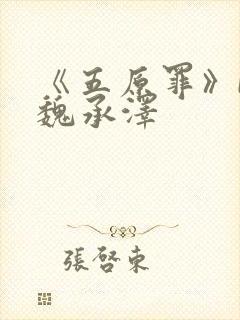 《五原罪》
魏承澤
張啓東